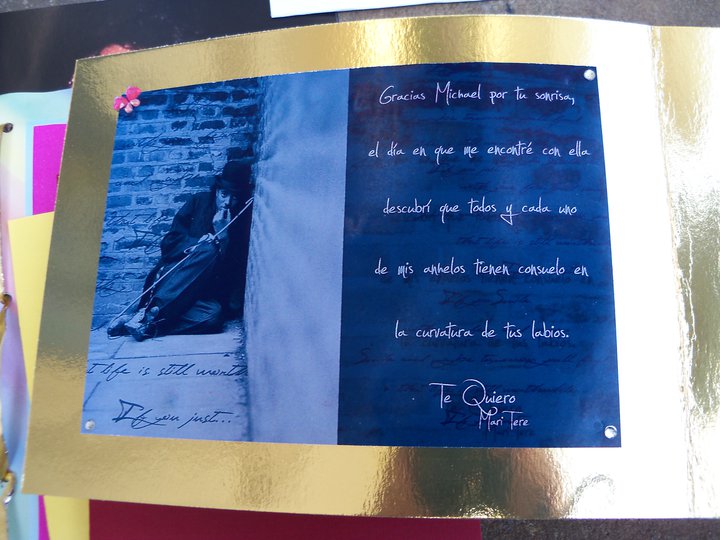 Gracias Michael por tu sonrisa,
el día en que me encontré con ella
descubrí que todos y cada uno
de mis anhelos tienen consuelo en
la curvatura de tus labios.
Te Quiero
Mari Tere
life is still worth
If you just...